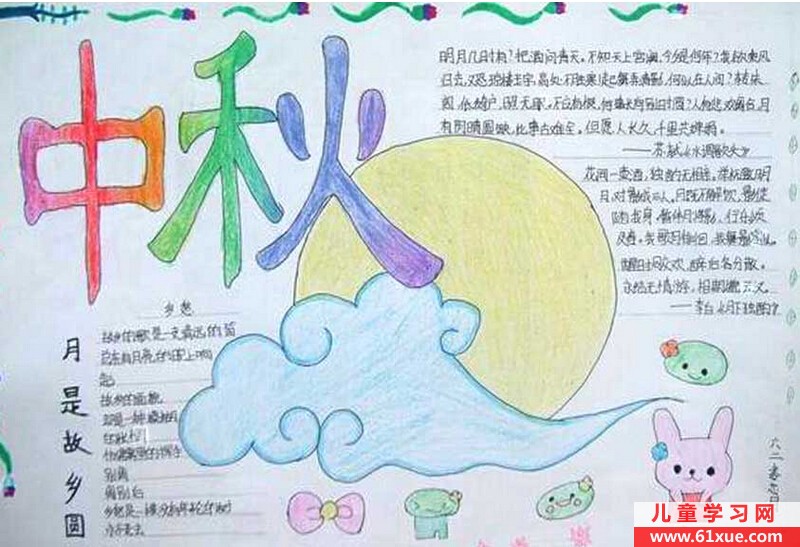 中秋
明月几时有?把酒问青天,不知天上宫阙,今夕是何年?我欲乘风
归去,又恐琼楼玉宇,高处不胜寒,起舞弄清影,何似在人间?转朱
阁,低绮户,照无眠,不应有恨,何事长向别时圆?人有悲欢离合,月
有阴晴圆缺,此事古难全,但愿人长久,千里共婵娟。
——苏轼《水调歌头》
花间一壶酒,独酌无相亲。举杯邀明
月,对影成三人。月既不解饮,影徒
随我身。暂伴月将影,行乐须
及春。我歌月徘徊,我舞影零乱。
醒时同交欢,醉后各分散。
永结无情游,相期邈云汉
——李白《月下独酌》
月是故乡圆
乡愁
故乡的歌是一支清远的笛
总在有月亮的晚上响
起
别离
离别后
乡愁是一棵没有年轮的树
永不老去
儿童学习网
www.61xue.com